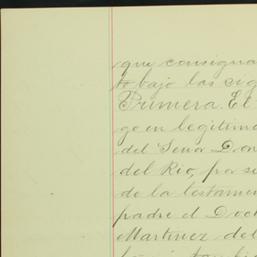 que consigna
to bajo las sig
Primera. El
go en legitimo
del Señor Don
del Rio, por si
de la testamen
padre el Doct
Martinez del